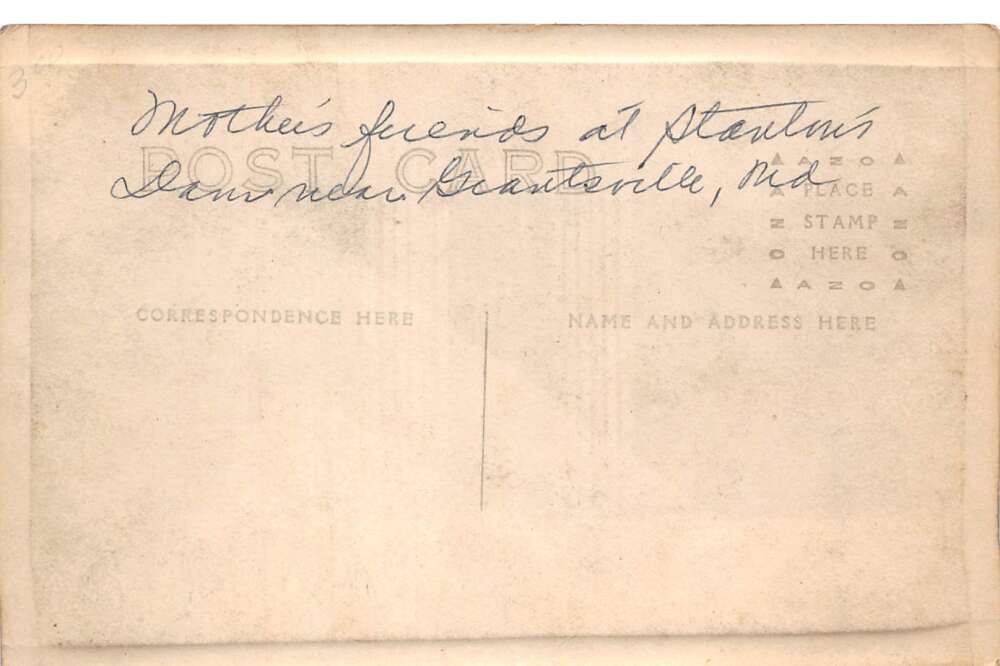 3
Mother's friends at Stanton's
Dam near Grantsville, Md
POST CARD
AZO
PLACE
STAMP
HERE
AZO
CORRESPONDENCE HERE
NAME AND ADDRESS HERE